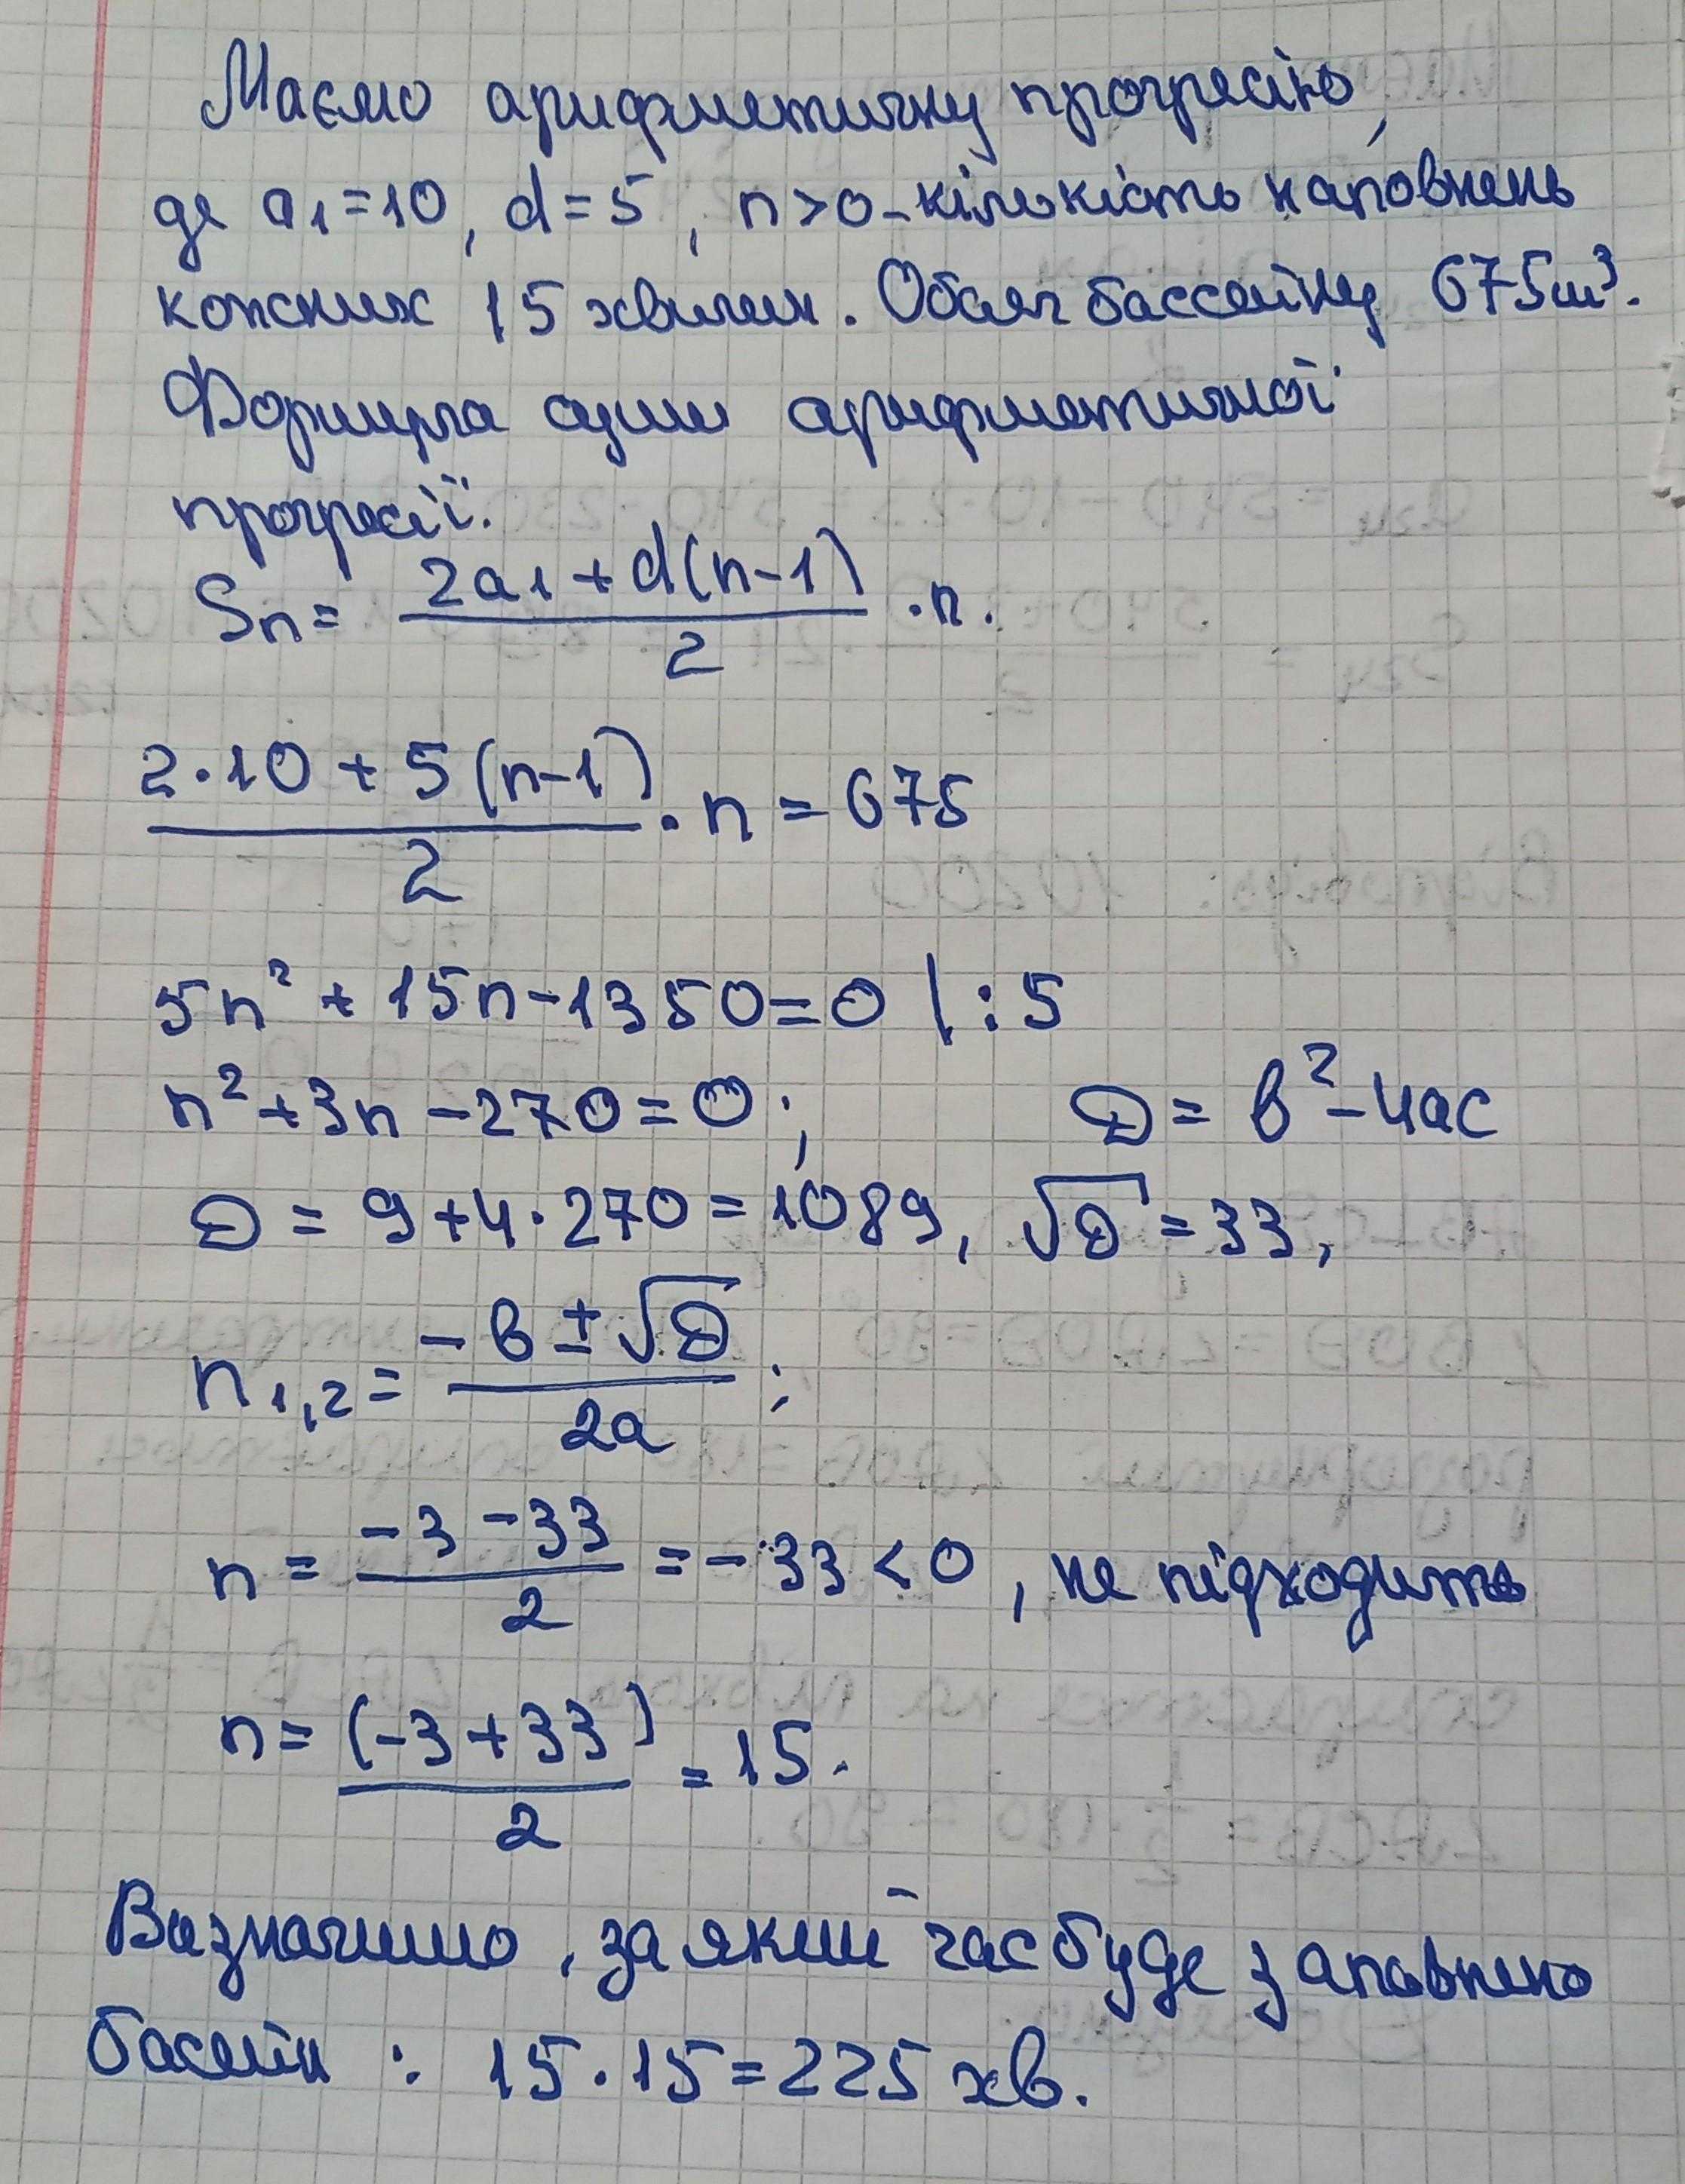 Маємо арифметичну прогресію,
де a₁=10, d=5, n>0-кількість наповнень
кожних 15 хвилин. Обсяг бассейну 675м³.
Формула суми арифметичної
прогресії.
Sn = (2a₁ + d(n-1))/2 · n.
(2·10 + 5(n-1))/2 · n = 675
5n² + 15n - 1350 = 0 | : 5
n² + 3n - 270 = 0; D = b² - 4ac
D = 9 + 4·270 = 1089, √D = 33,
n₁,₂ = (-b ± √D)/2a ;
n = (-3 - 33)/2 = -33 < 0, не підходить
n = (-3 + 33)/2 = 15.
Визначимо, за який час буде заповнено
басейн : 15·15=225 хв.